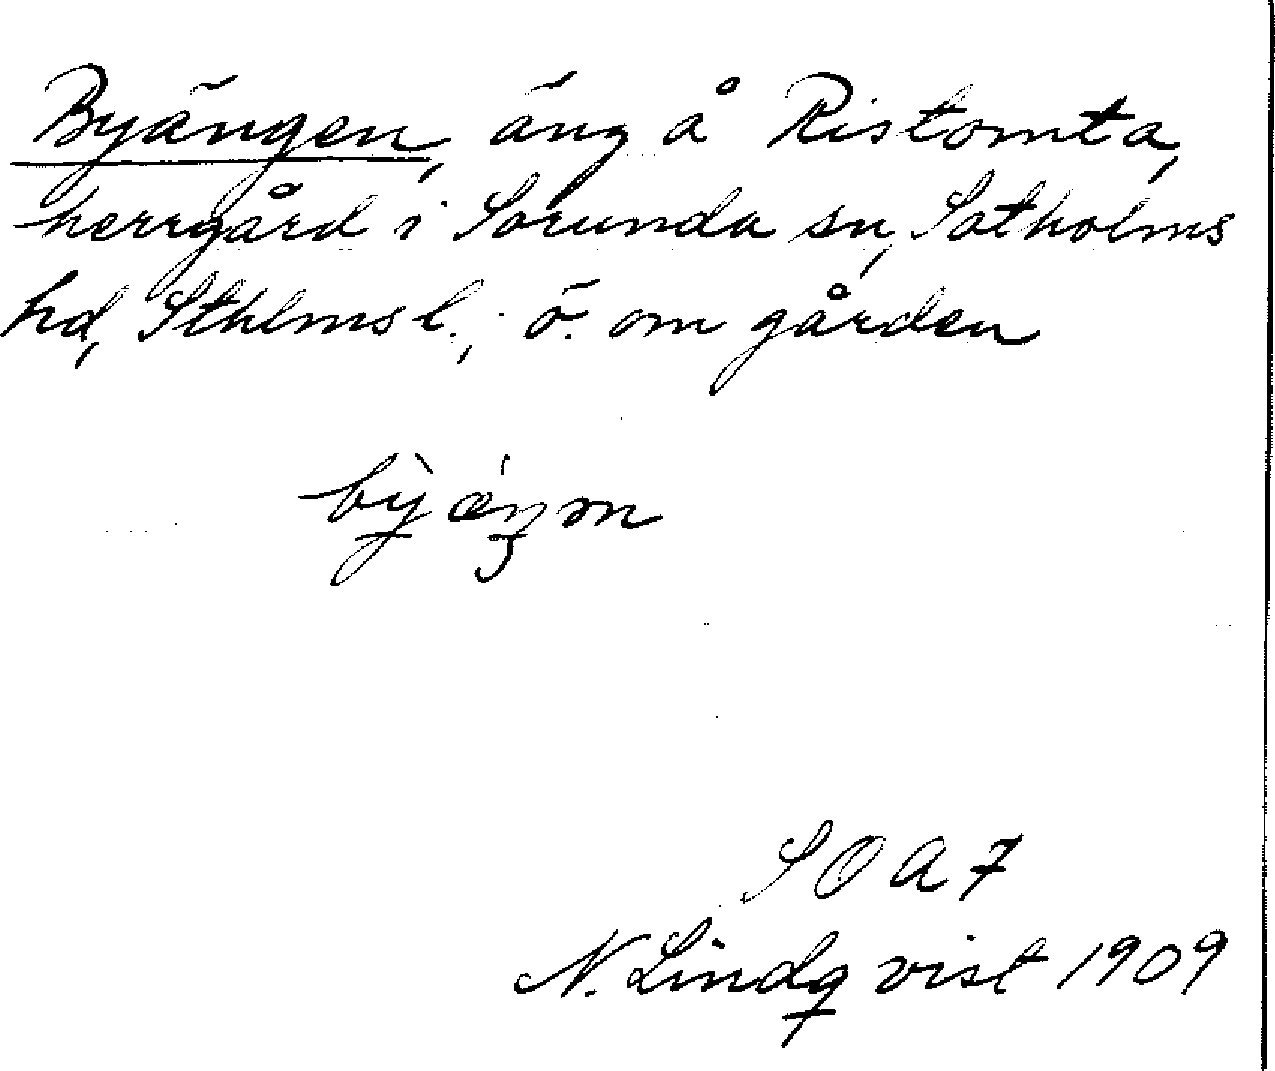 Byängen, äng å Ristomta,
herrgård i Sorunda sn, Sotholms
hd, Sthlms l.; ö. om gården
bỳæ̀ŋən
SOA7
N. Lindqvist 1909